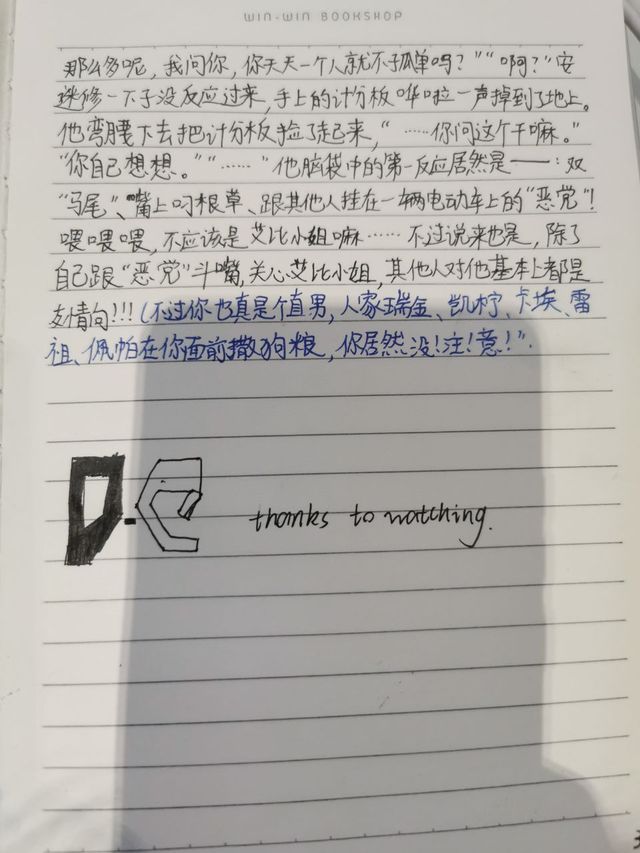 WIN-WIN BOOKSHOP
那么多呢，我问你，你天天一个人就不孤单吗？”“啊？”安
迷修一下子没反应过来，手上的计分板哗啦一声掉到了地上。
他弯腰下去把计分板捡了起来，“……你问这个干嘛。”
“你自己想想。”“……”他脑袋中的第一反应居然是——：双
“马尾”、嘴上叼根草、跟其他人挂在一辆电动车上的“恶党”！
喂喂喂，不应该是艾比小姐嘛……不过说来也是，除了
自己跟“恶党”斗嘴，关心艾比小姐，其他人对他基本上都是
友情向!!!（不过你也真是个直男，人家瑞金、凯柠、卡埃、雷
祖、佩帕在你面前撒狗粮，你居然没！注！意！”.
D.C
thanks to watching.